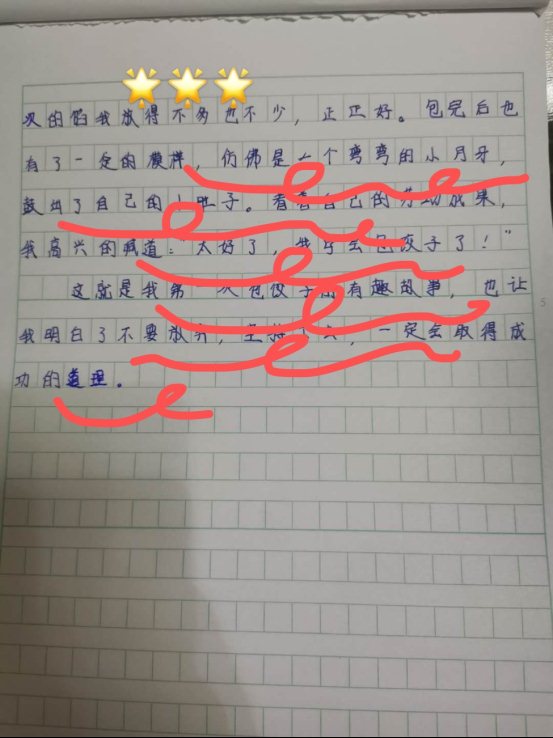 次的馅我放得不多也不少，正正好。包完后也
有了一定的模样，仿佛是一个弯弯的小月牙，
鼓出了自己的小肚子。看着自己的劳动成果，
我高兴的喊道：“太好了，我学会包饺子了！”
这就是我第一次包饺子的有趣故事，也让
我明白了不要放弃，坚持下去，一定会取得成
功的道理。